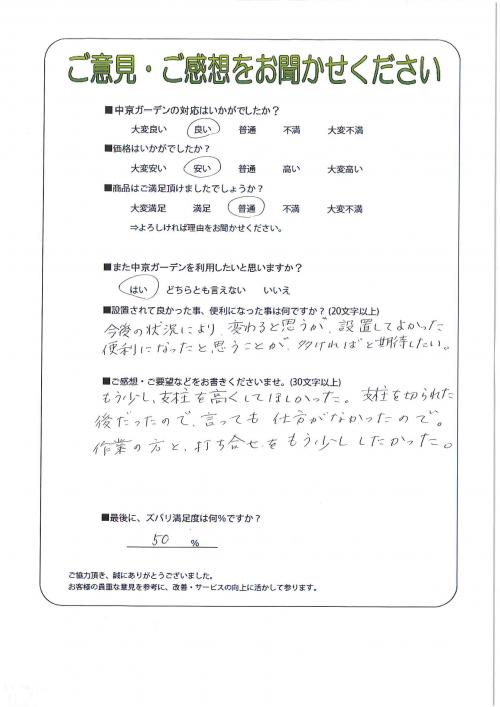 ご意見・ご感想をお聞かせください
■中京ガーデンの対応はいかがでしたか?
大変良い 良い 普通 不満 大変不満
■価格はいかがでしたか?
大変安い 安い 普通 高い 大変高い
■商品はご満足頂けましたでしょうか?
大変満足 満足 普通 不満 大変不満
⇒よろしければ理由をお聞かせください。
■また中京ガーデンを利用したいと思いますか?
はい どちらとも言えない いいえ
■設置されて良かった事、便利になった事は何ですか? (20文字以上)
今後の状況により、変わると思うが、設置してよかった
便利になったと、思うことが、多ければと期待したい。
■ご感想・ご要望などをお書きくださいませ。(30文字以上)
もう少し、支柱を高くしてほしかった。支柱を切られた
後だったので、言っても仕方がなかったので。
作業の方と、打ち合せをもう少ししたかった。
■最後に、ズバリ満足度は何%ですか?
50 %
ご協力頂き、誠にありがとうございました。
お客様の貴重な意見を参考に、改善・サービスの向上に活かして参ります。